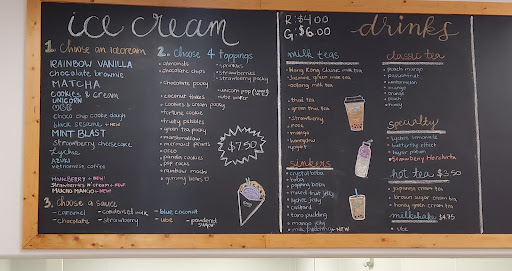 ice cream
1. Choose an icecream
RAINBOW VANILLA
chocolate brownie
MATCHA
COOKIES & CREAM
UNICORN
choc chip cookie dough
black sesame
MINT BLAST
strawberry cheesecake
lychee
AZUKI
vietnamese coffee
strawberries n cream
MANGO MANGO
3. choose a sauce
- caramel
- chocolate
- condensed milk
- strawberry
- blue coconut
- ube
- powdered sugar
2. Choose 4 toppings
almonds
chocolate chips
chocolate pocky
coconut flakes
cookies & cream pocky
fortune cookie
fruity pebbles
green tea pocky
marshmallow
mermaid pearls
oreo
panda cookies
pop rocks
rainbow mochi
gummy bears
sprinkles
strawberries
strawberry pocky
unicorn pop
ube wafer
$7.50
R: $4.00
G: $6.00
drinks
milk teas
Hong Kong classic milk tea
Jasmine green milk tea
oolong milk tea
thai tea
green thai tea
strawberry
rose
mango
honeydew
yogurt
sinkers
crystal boba
boba
popping boba
mixed fruit jelly
lychee jelly
custard
taro pudding
mango jelly
NEW
classic tea
peach mango
passionfruit
watermelon
mango
orange
peach
honey
specialty
lychee limeade
butterfly effect
Strawberry Horchata
hot tea $3.50
japanese cream tea
brown sugar cream tea
honey green cream tea
milkshake $4.75
ube